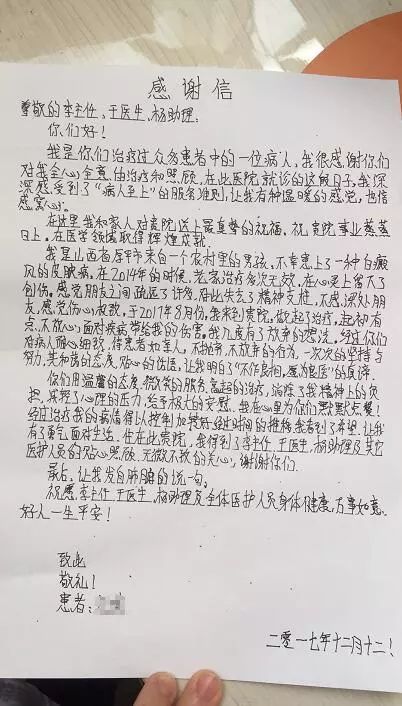 感谢信
尊敬的李主任、于医生、杨助理:
你们好!
我是你们治疗过众多患者中的一位病人,我很感谢你们
对我全心全意的治疗和照顾,在此医院就诊的这段日子,我深
深感受到了“病人至上”的服务准则,让我有种温暖的感觉,也倍
感窝心。
在这里我和家人对贵院送上最真挚的祝福。祝:贵院事业蒸蒸
日上。在医学领域取得辉煌成就.
我是山西省原平市来自一个农村里的男孩,不幸患上了一种白癜
风的皮肤病,在2014年的时候,老家治疗多次无效,在心灵上增大了
创伤。感觉朋友之间疏远了许多,从此失去了精神支柱,不愿深处朋
友,感觉伤心欲绝,于2017年8月份,我来到贵院,做起了治疗,起初有
点不放心,面对疾病带给我的伤害。我几度有了放弃的想法,经过你们
给病人耐心细致,待患者如亲人,不抛弃,不放弃的行为,一次次的坚持与
努力,其和蔼的态度,贴心的话语,让我明白了“不作良相,愿为良医”的真谛,
你们用温馨的态度,微笑的服务,高超的治疗,消除了我精神上的负
担,减轻了心理的压力,给予极大的安慰,我在心里为你们默默点赞!
经过治疗我的病情得以控制加持,经过时间的推移,我看到了希望,让我
有了勇气面对生活,住在此贵院,我得到了李主任,于医生,杨助理及其它
医护人员的贴心照顾,无微不致的关心,谢谢你们.
最后,让我发自肺腑的说一句.
祝愿:李主任,于医生,杨助理及全体医护人员身体健康,万事如意.
好人一生平安!
致此
敬礼!
患者:
二零一七年十二月十二!